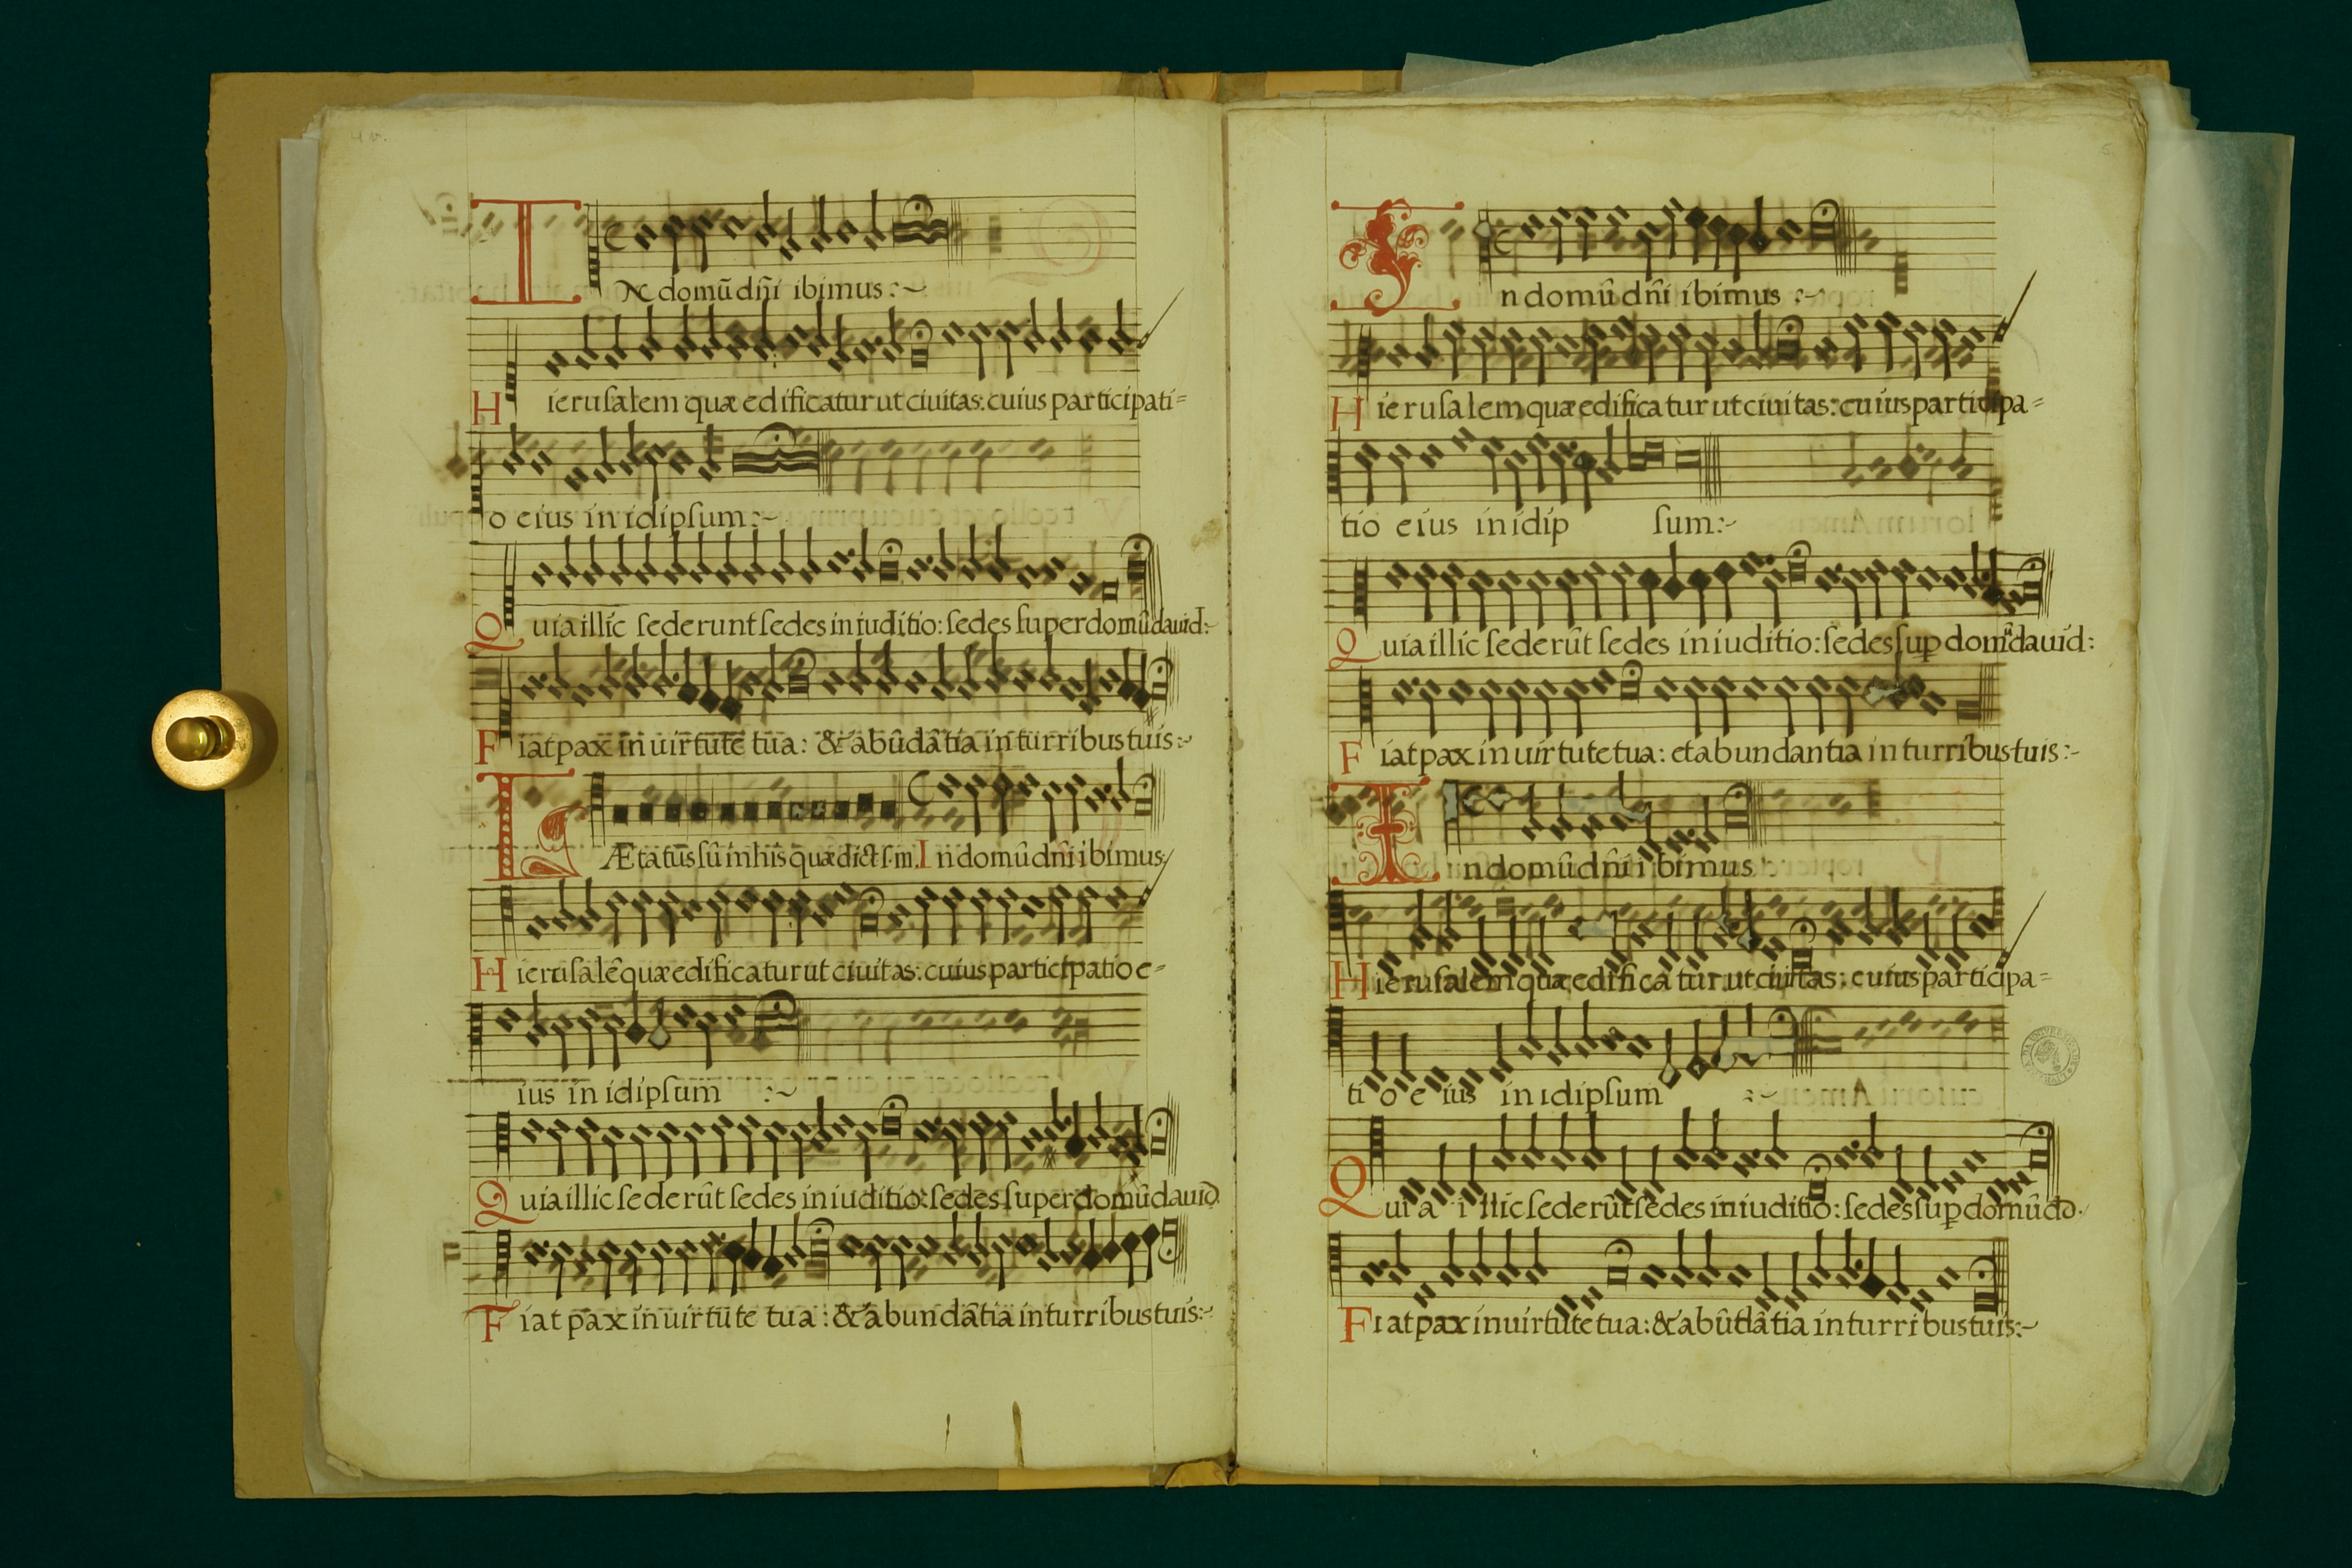 4v.
IN domū dñi ibimus:~
Hierusalem quæ edificatur ut ciuitas: cuius participati=
o eius in idipsum:~
Quia illic sederunt sedes in iuditio: sedes super domū dauid:~
Fiat pax in uirtute tua: & abūdātia in turribus tuis:~
LÆtatus sū in his quæ dict s. m. In domū dñi ibimus:
Hierusalē quæ edificatur ut ciuitas: cuius participatio e=
ius in idipsum :~
Quia illic sederūt sedes in iuditio: sedes super domū dauid.
Fiat pax in uirtute tua: & abundātia in turribus tuis:~
In domū dñi ibimus :~
Hierusalem quæ edificatur ut ciuitas: cuius participa=
tio eius in idip sum:~
Quia illic sederūt sedes in iuditio: sedes sup domū dauid:
Fiat pax in uirtute tua: et abundantia in turribus tuis:~
In domū dñi ibimus
Hierusalem quæ edificatur ut ciuitas: cuius participa=
tio eius in idipsum :~
Quia illic sederūt sedes in iuditio: sedes sup domū dd.
Fiat pax in uirtute tua: & abūdātia in turribus tuis:~